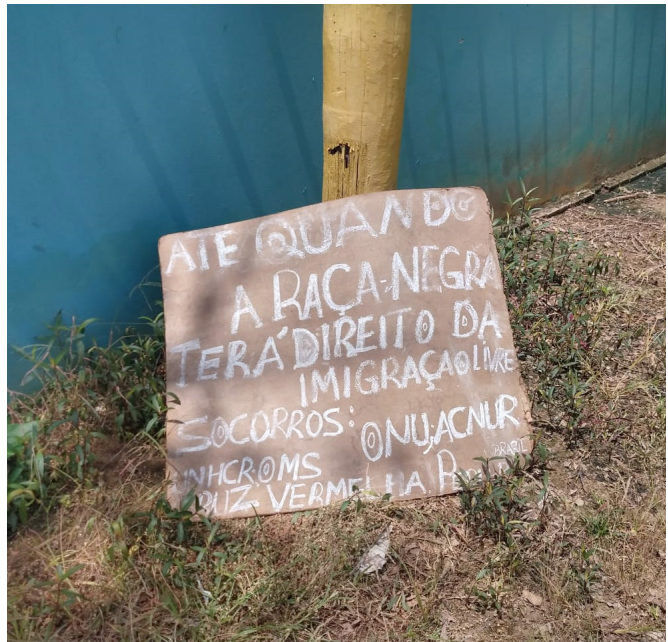 ATE QUANDO
A RAÇA-NEGRA
TERÁ DIREITO DA
IMIGRAÇAO LIVRE
SOCORROS: ONU, ACNUR
BRASIL
UNHCR OMS
CRUZ VERMELHA